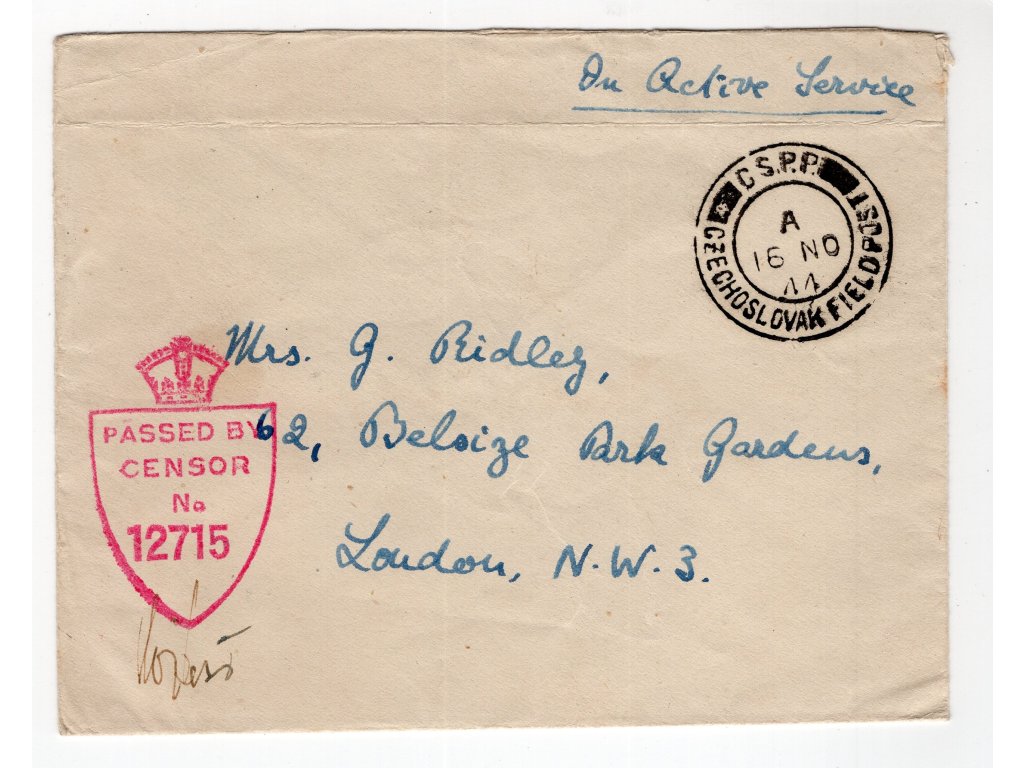 On Active Service
C S.P.P.
A
16 NO
44
CZECHOSLOVAK FIELD POST
Mrs. G. Ridley,
62, Belsize Park Gardens,
London, N.W.3.
PASSED BY
CENSOR
No
12715